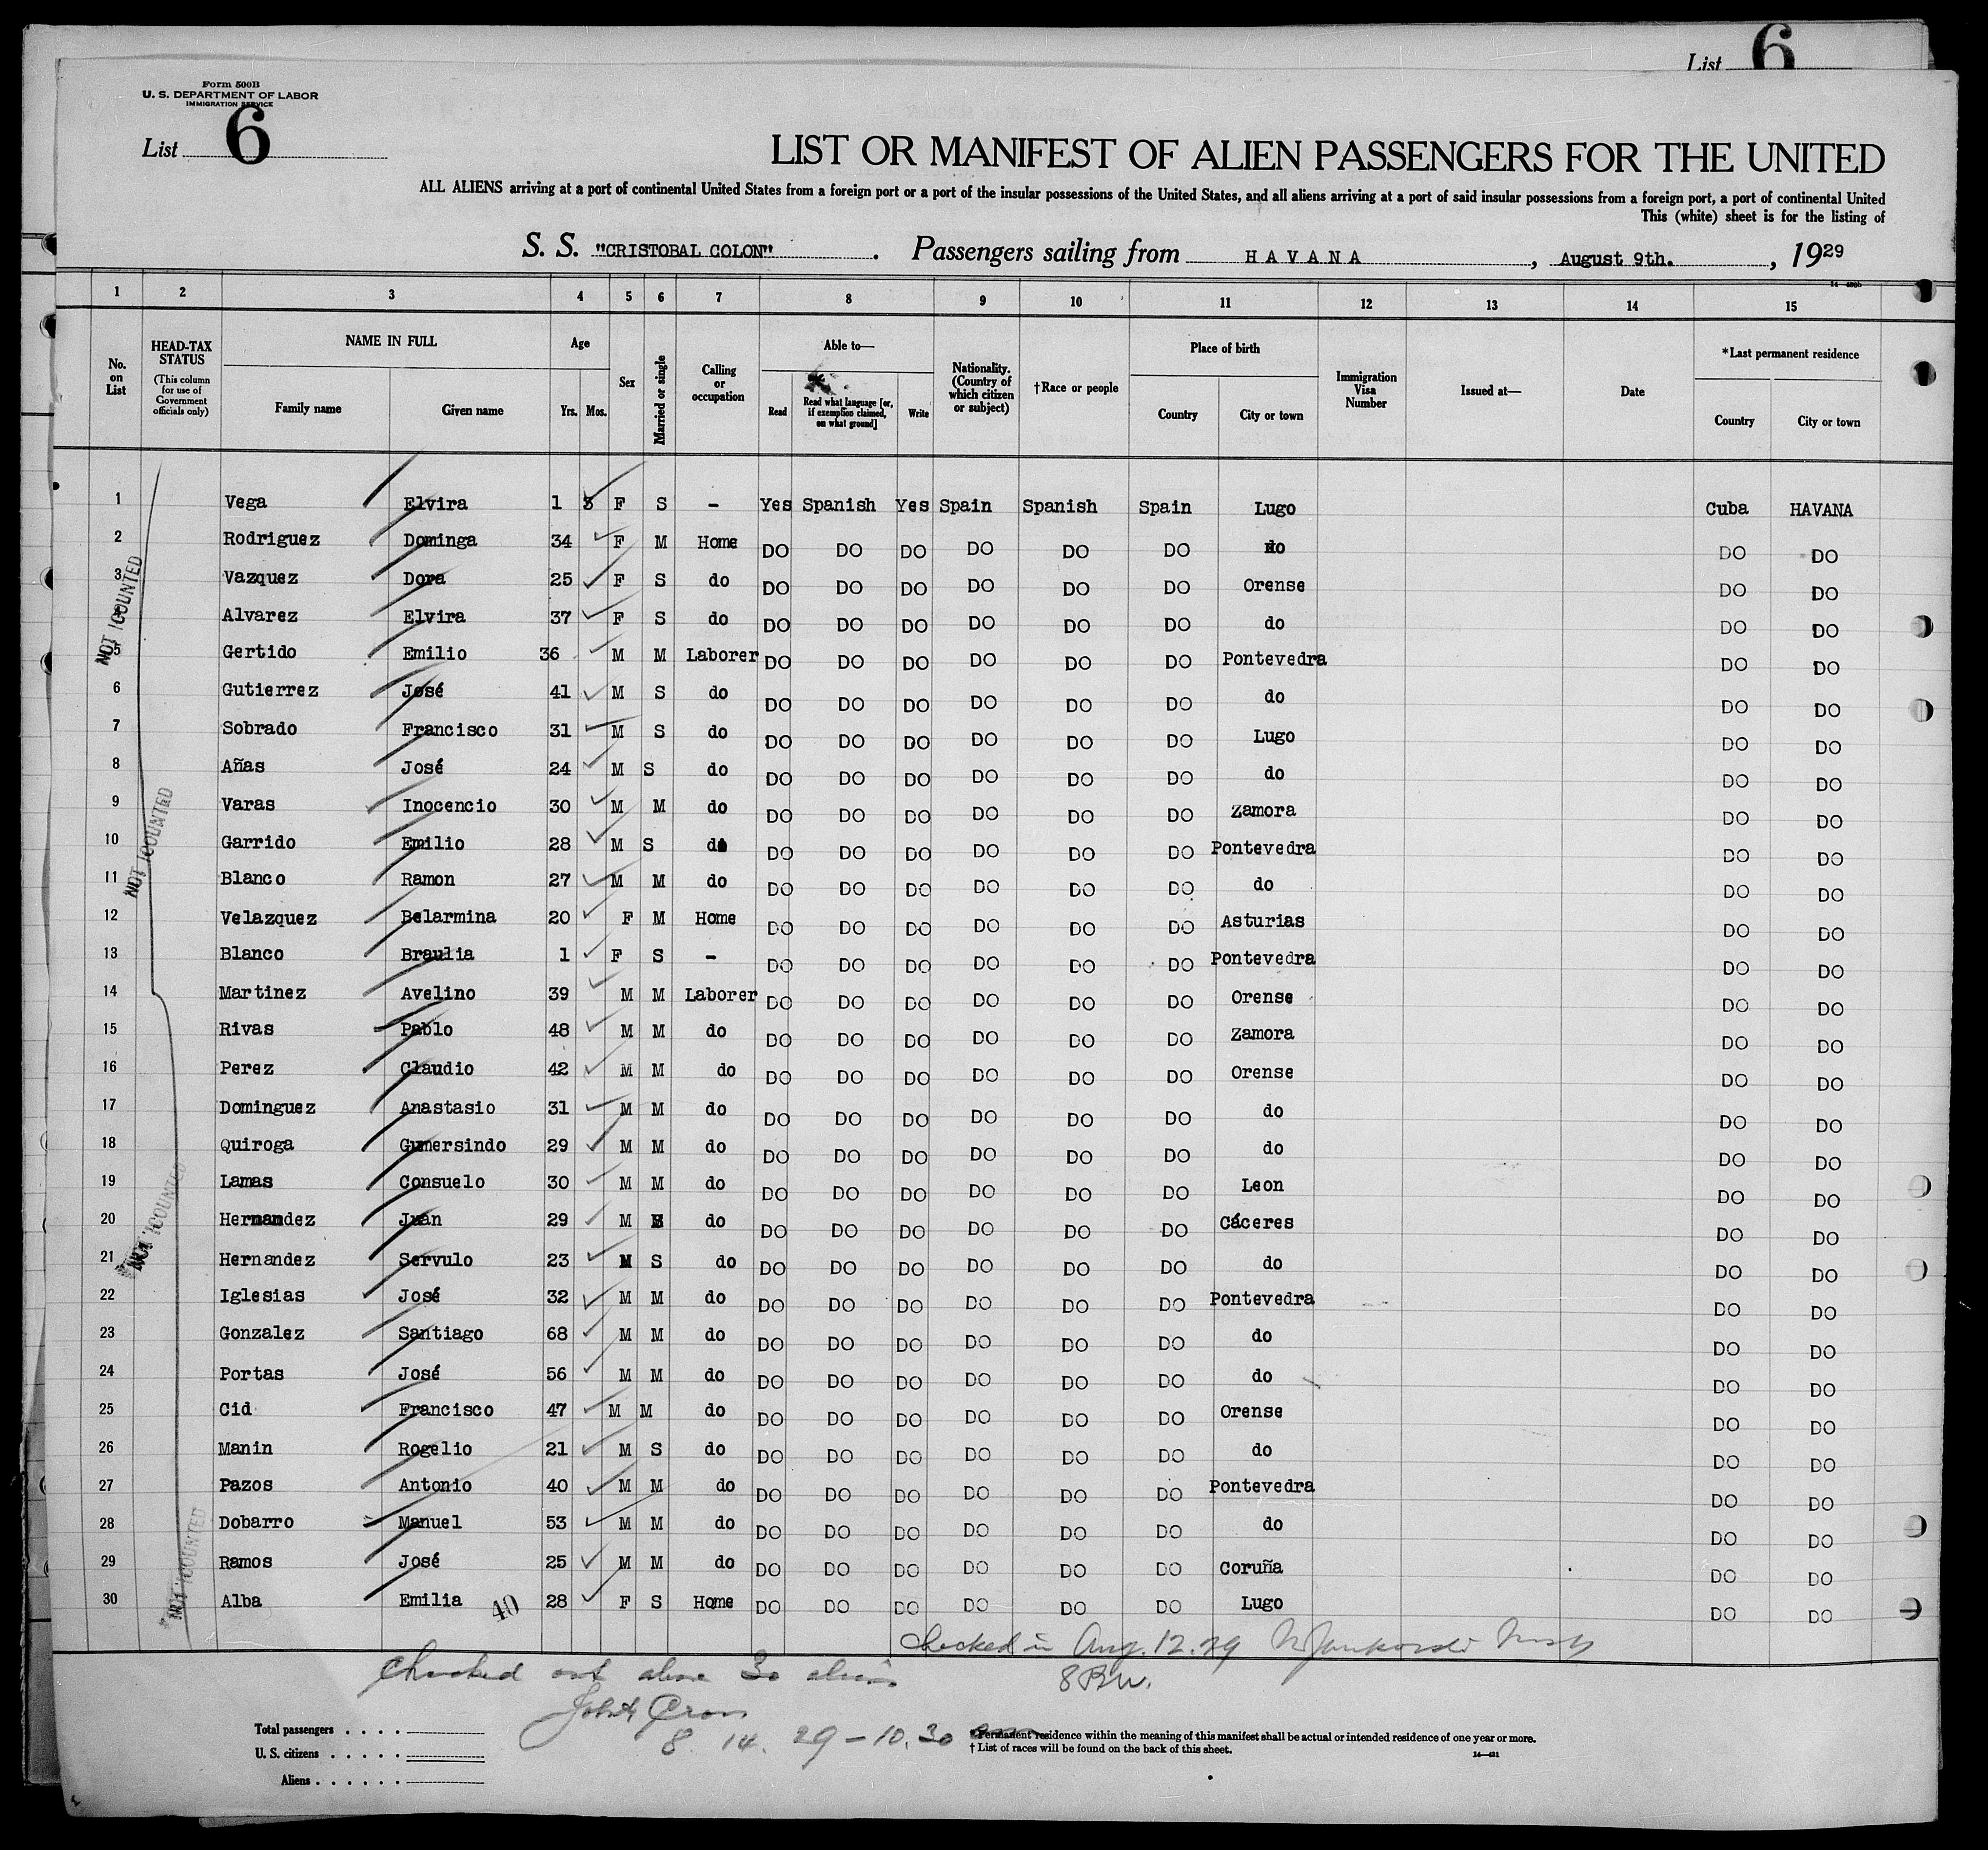 List 6
Form 500B
U. S. DEPARTMENT OF LABOR
IMMIGRATION SERVICE
List 6
LIST OR MANIFEST OF ALIEN PASSENGERS FOR THE UNITED
ALL ALIENS arriving at a port of continental United States from a foreign port or a port of the insular possessions of the United States, and all aliens arriving at a port of said insular possessions from a foreign port, a port of continental United
This (white) sheet is for the listing of
S. S. "CRISTOBAL COLON" . Passengers sailing from HAVANA , August 9th. , 1929
1 2 3 4 5 6 7 8 9 10 11 12 13 14 15
No. on List
HEAD-TAX STATUS (This column for use of Government officials only)
NAME IN FULL Family name Given name
Age Yrs. Mos.
Sex
Married or single
Calling or occupation
Able to— Read Read what language [or, if exemption claimed, on what ground] Write
Nationality. (Country of which citizen or subject)
†Race or people
Place of birth Country City or town
Immigration Visa Number
Issued at—
Date
*Last permanent residence Country City or town
1 Vega Elvira 1 8 F S - Yes Spanish Yes Spain Spanish Spain Lugo Cuba HAVANA
2 Rodriguez Dominga 34 F M Home DO DO DO DO DO DO do DO DO
3 Vazquez Dora 25 F S do DO DO DO DO DO DO Orense DO DO
Alvarez Elvira 37 F S do DO DO DO DO DO DO do DO DO
5 Gertido Emilio 36 M M Laborer DO DO DO DO DO DO Pontevedra DO DO
6 Gutierrez José 41 M S do DO DO DO DO DO DO do DO DO
7 Sobrado Francisco 31 M S do DO DO DO DO DO DO Lugo DO DO
8 Añas José 24 M S do DO DO DO DO DO DO do DO DO
9 Varas Inocencio 30 M M do DO DO DO DO DO DO Zamora DO DO
10 Garrido Emilio 28 M S do DO DO DO DO DO DO Pontevedra DO DO
11 Blanco Ramon 27 M M do DO DO DO DO DO DO do DO DO
12 Velazquez Belarmina 20 F M Home DO DO DO DO DO DO Asturias DO DO
13 Blanco Braulia 1 F S - DO DO DO DO DO DO Pontevedra DO DO
14 Martinez Avelino 39 M M Laborer DO DO DO DO DO DO Orense DO DO
15 Rivas Pablo 48 M M do DO DO DO DO DO DO Zamora DO DO
16 Perez Claudio 42 M M do DO DO DO DO DO DO Orense DO DO
17 Dominguez Anastasio 31 M M do DO DO DO DO DO DO do DO DO
18 Quiroga Gumersindo 29 M M do DO DO DO DO DO DO do DO DO
19 Lamas Consuelo 30 M M do DO DO DO DO DO DO Leon DO DO
20 Hernandez Juan 29 M do DO DO DO DO DO DO Cáceres DO DO
21 Hernandez Servulo 23 M S do DO DO DO DO DO DO do DO DO
22 Iglesias José 32 M M do DO DO DO DO DO DO Pontevedra DO DO
23 Gonzalez Santiago 68 M M do DO DO DO DO DO DO do DO DO
24 Portas José 56 M M do DO DO DO DO DO DO do DO DO
25 Cid Francisco 47 M M do DO DO DO DO DO DO Orense DO DO
26 Manin Rogelio 21 M S do DO DO DO DO DO DO do DO DO
27 Pazos Antonio 40 M M do DO DO DO DO DO DO Pontevedra DO DO
28 Dobarro Manuel 53 M M do DO DO DO DO DO DO do DO DO
29 Ramos José 25 M M do DO DO DO DO DO DO Coruña DO DO
30 Alba Emilia 40 28 F S Home DO DO DO DO DO DO Lugo DO DO
NOT COUNTED
NOT COUNTED
NOT COUNTED
NOT COUNTED
Checked in Aug. 12.29
Checked out above 30 aliens
John
8 14. 29 - 10.30
Total passengers
U. S. citizens
Aliens
*Permanent residence within the meaning of this manifest shall be actual or intended residence of one year or more.
† List of races will be found on the back of this sheet.
14—421